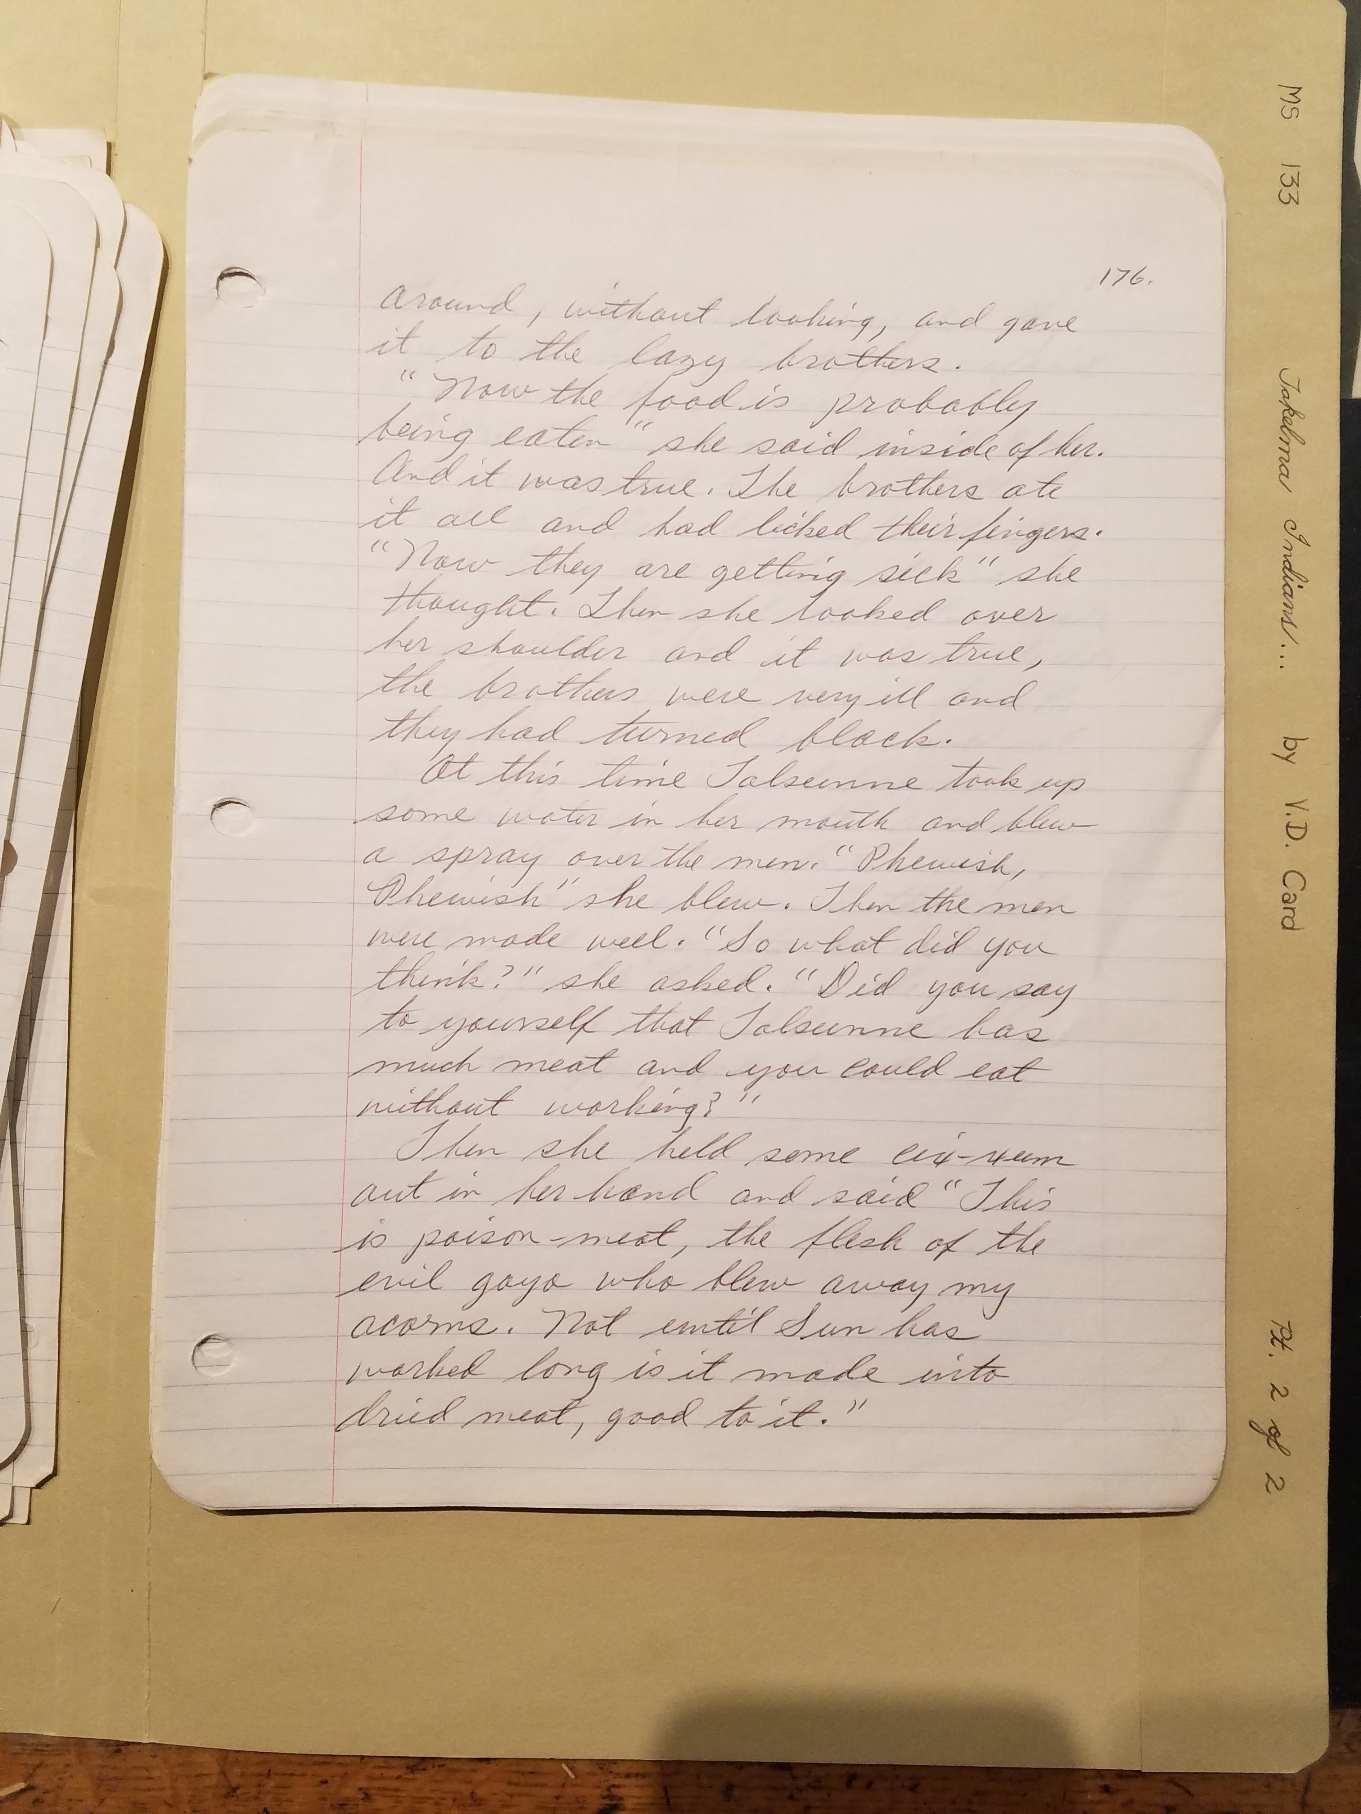 176.
around, without looking, and gave
it to the lazy brothers.
"Now the food is probably
being eaten" she said inside of her.
And it was true. The brothers ate
it all and had licked their fingers.
"Now they are getting sick" she
thought. Then she looked over
her shoulder and it was true,
the brothers were very ill and
they had turned black.
At this time Talsunne took up
some water in her mouth and blew
a spray over the men. "Phewish,
Phewish" she blew. Then the men
were made well. "So what did you
think?" she asked. "Did you say
to yourself that Talsunne has
much meat and you could eat
without working?"
Then she held some cix-xum
out in her hand and said "This
is poison-meat, the flesh of the
evil goyo who blew away my
acorns. Not until Sun has
worked long is it made into
dried meat, good to it."
MS 133 Takelma Indians... by V.D. Card Pt. 2 of 2